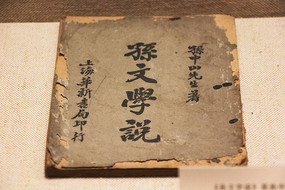 孫中山先生著
孫文學說
上海華新書局印行